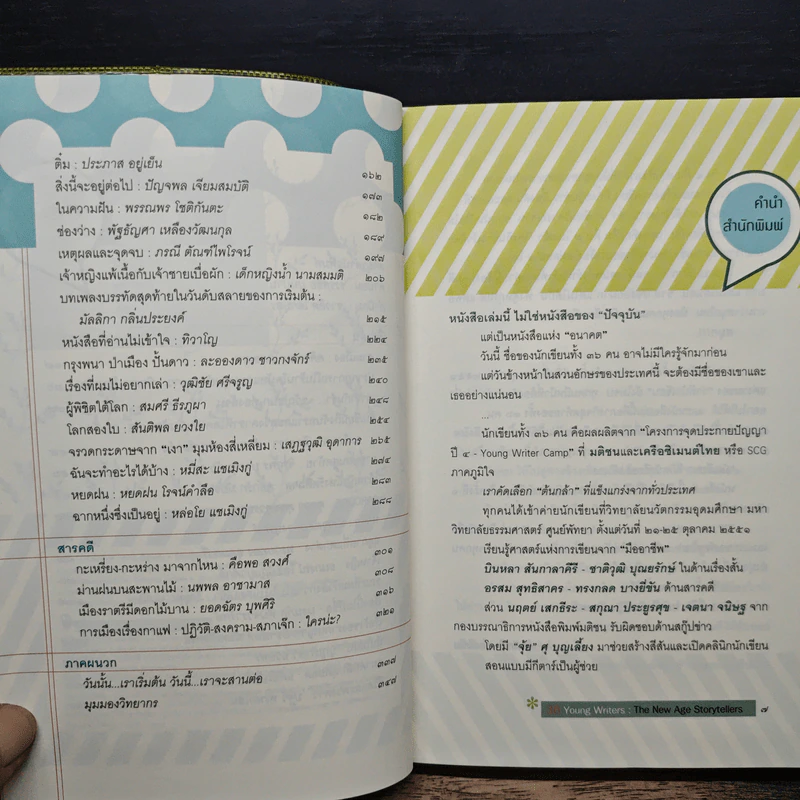 ติ๋ม : ประภาส อยู่เย็น ๑๖๒
สิ่งนี้จะอยู่ต่อไป : ปัญจพล เจียมสมบัติ ๑๗๓
ในความฝัน : พรรณพร โชติกันตะ ๑๘๒
ช่องว่าง : พัฐธัญศา เหลืองวัฒนกุล ๑๘๙
เหตุผลและจุดจบ : ภรณี ตัณฑ์ไพโรจน์ ๑๙๗
เจ้าหญิงแพ้เนื้อกับเจ้าชายเบื่อผัก : เด็กหญิงน้ำ นามสมมติ ๒๐๖
บทเพลงบรรทัดสุดท้ายในวันดับสลายของการเริ่มต้น :
มัลลิกา กลิ่นประยงค์ ๒๑๕
หนังสือที่อ่านไม่เข้าใจ : ทิวาโญ ๒๒๔
กรุงพนา ป่าเมือง ปั้นดาว : ละอองดาว ชาวกงจักร์ ๒๓๕
เรื่องที่ผมไม่อยากเล่า : วุฒิชัย ศรีจรูญ ๒๔๐
ผู้พิชิตใต้โลก : สมศรี ธีรภูผา ๒๔๘
โลกสองใบ : สันติพล ยวงใย ๒๕๔
จรวดกระดาษจาก "เงา" มุมห้องสี่เหลี่ยม : เสฎฐวุฒิ อุดาการ ๒๖๕
ฉันจะทำอะไรได้บ้าง : หมี่สะ แชเมิงกู่ ๒๗๔
หยดฝน : หยดฝน โรจน์คำลือ ๒๘๓
ฉากหนึ่งซึ่งเป็นอยู่ : หล่อโย แชเมิงกู่ ๒๘๘
สารคดี
กะเหรี่ยง-กะหร่าง มาจากไหน : คือพอ สวงศ์ ๓๐๑
ม่านฝนบนสะพานไม้ : นพพล อาชามาส ๓๐๘
เมืองราตรีมีดอกไม้บาน : ยอดฉัตร บุพศิริ ๓๑๖
การเมืองเรื่องกาแฟ : ปฏิวัติ-สงคราม-สภาเจ๊ก : ใครน่ะ? ๓๒๑
ภาคผนวก
วันนั้น...เราเริ่มต้น วันนี้...เราจะสานต่อ ๓๓๗
มุมมองวิทยากร ๓๔๗
คำนำ
สำนักพิมพ์
หนังสือเล่มนี้ ไม่ใช่หนังสือของ "ปัจจุบัน"
แต่เป็นหนังสือแห่ง "อนาคต"
วันนี้ ชื่อของนักเขียนทั้ง ๓๖ คน อาจไม่มีใครรู้จักมาก่อน
แต่วันข้างหน้าในสวนอักษรของประเทศนี้ จะต้องมีชื่อของเขาและ
เธออย่างแน่นอน
...
นักเขียนทั้ง ๓๖ คน คือผลผลิตจาก "โครงการจุดประกายปัญญา
ปี ๔ - Young Writer Camp" ที่ มติชนและเครือซิเมนต์ไทย หรือ SCG
ภาคภูมิใจ
เราคัดเลือก "ต้นกล้า" ที่แข็งแกร่งจากทั่วประเทศ
ทุกคนได้เข้าค่ายนักเขียนที่วิทยาลัยนวัตกรรมอุดมศึกษา มหา
วิทยาลัยธรรมศาสตร์ ศูนย์พัทยา ตั้งแต่วันที่ ๒๑-๒๕ ตุลาคม ๒๕๕๑
เรียนรู้ศาสตร์แห่งการเขียนจาก "มืออาชีพ"
บินหลา สันกาลาคีรี - ชาติวุฒิ บุณยรักษ์ ในด้านเรื่องสั้น
อรสม สุทธิสาคร - ทรงกลด บางยี่ขัน ด้านสารคดี
ส่วน นฤตย์ เสกธีระ - สกุณา ประยูรศุข - เจตนา จนิษฐ จาก
กองบรรณาธิการหนังสือพิมพ์มติชน รับผิดชอบด้านสกู๊ปข่าว
โดยมี "จุ้ย" ศุ บุญเลี้ยง มาช่วยสร้างสีสันและเปิดคลินิกนักเขียน
สอนแบบมีกีตาร์เป็นผู้ช่วย
Young Writers : The New Age Storytellers ๗